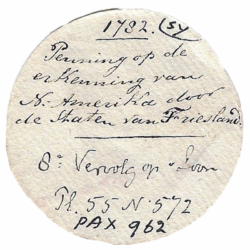 1782. (54)
Penning op de
erkenning van
N. Amerika door
de Staten van Friesland
8° Vervolg op v. Loon
Pl. 55 N. 572
PAX 962